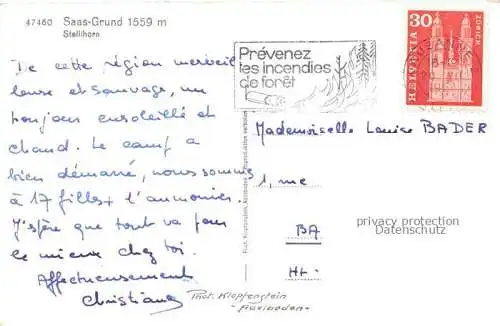 47460 Saas-Grund 1559 m
Stellihorn
De cette région merveil-
leuse et sauvage, un
bonjour ensoleillé et
chaud. Le camp a
bien démarré, nous sommes
à 17 filles + l'aumonier.
J'espère que tout va pour
le mieux chez toi.
Affectueusement
Christiane
Prévenez
les incendies
de forêt
HELVETIA
30
ZÜRICH
Mademoiselle Louise BADER
1, rue
BA
Ht-
privacy protection
Datenschutz
Phot. Klopfenstein
-Adelboden-
Phot. Klopfenstein, Adelboden